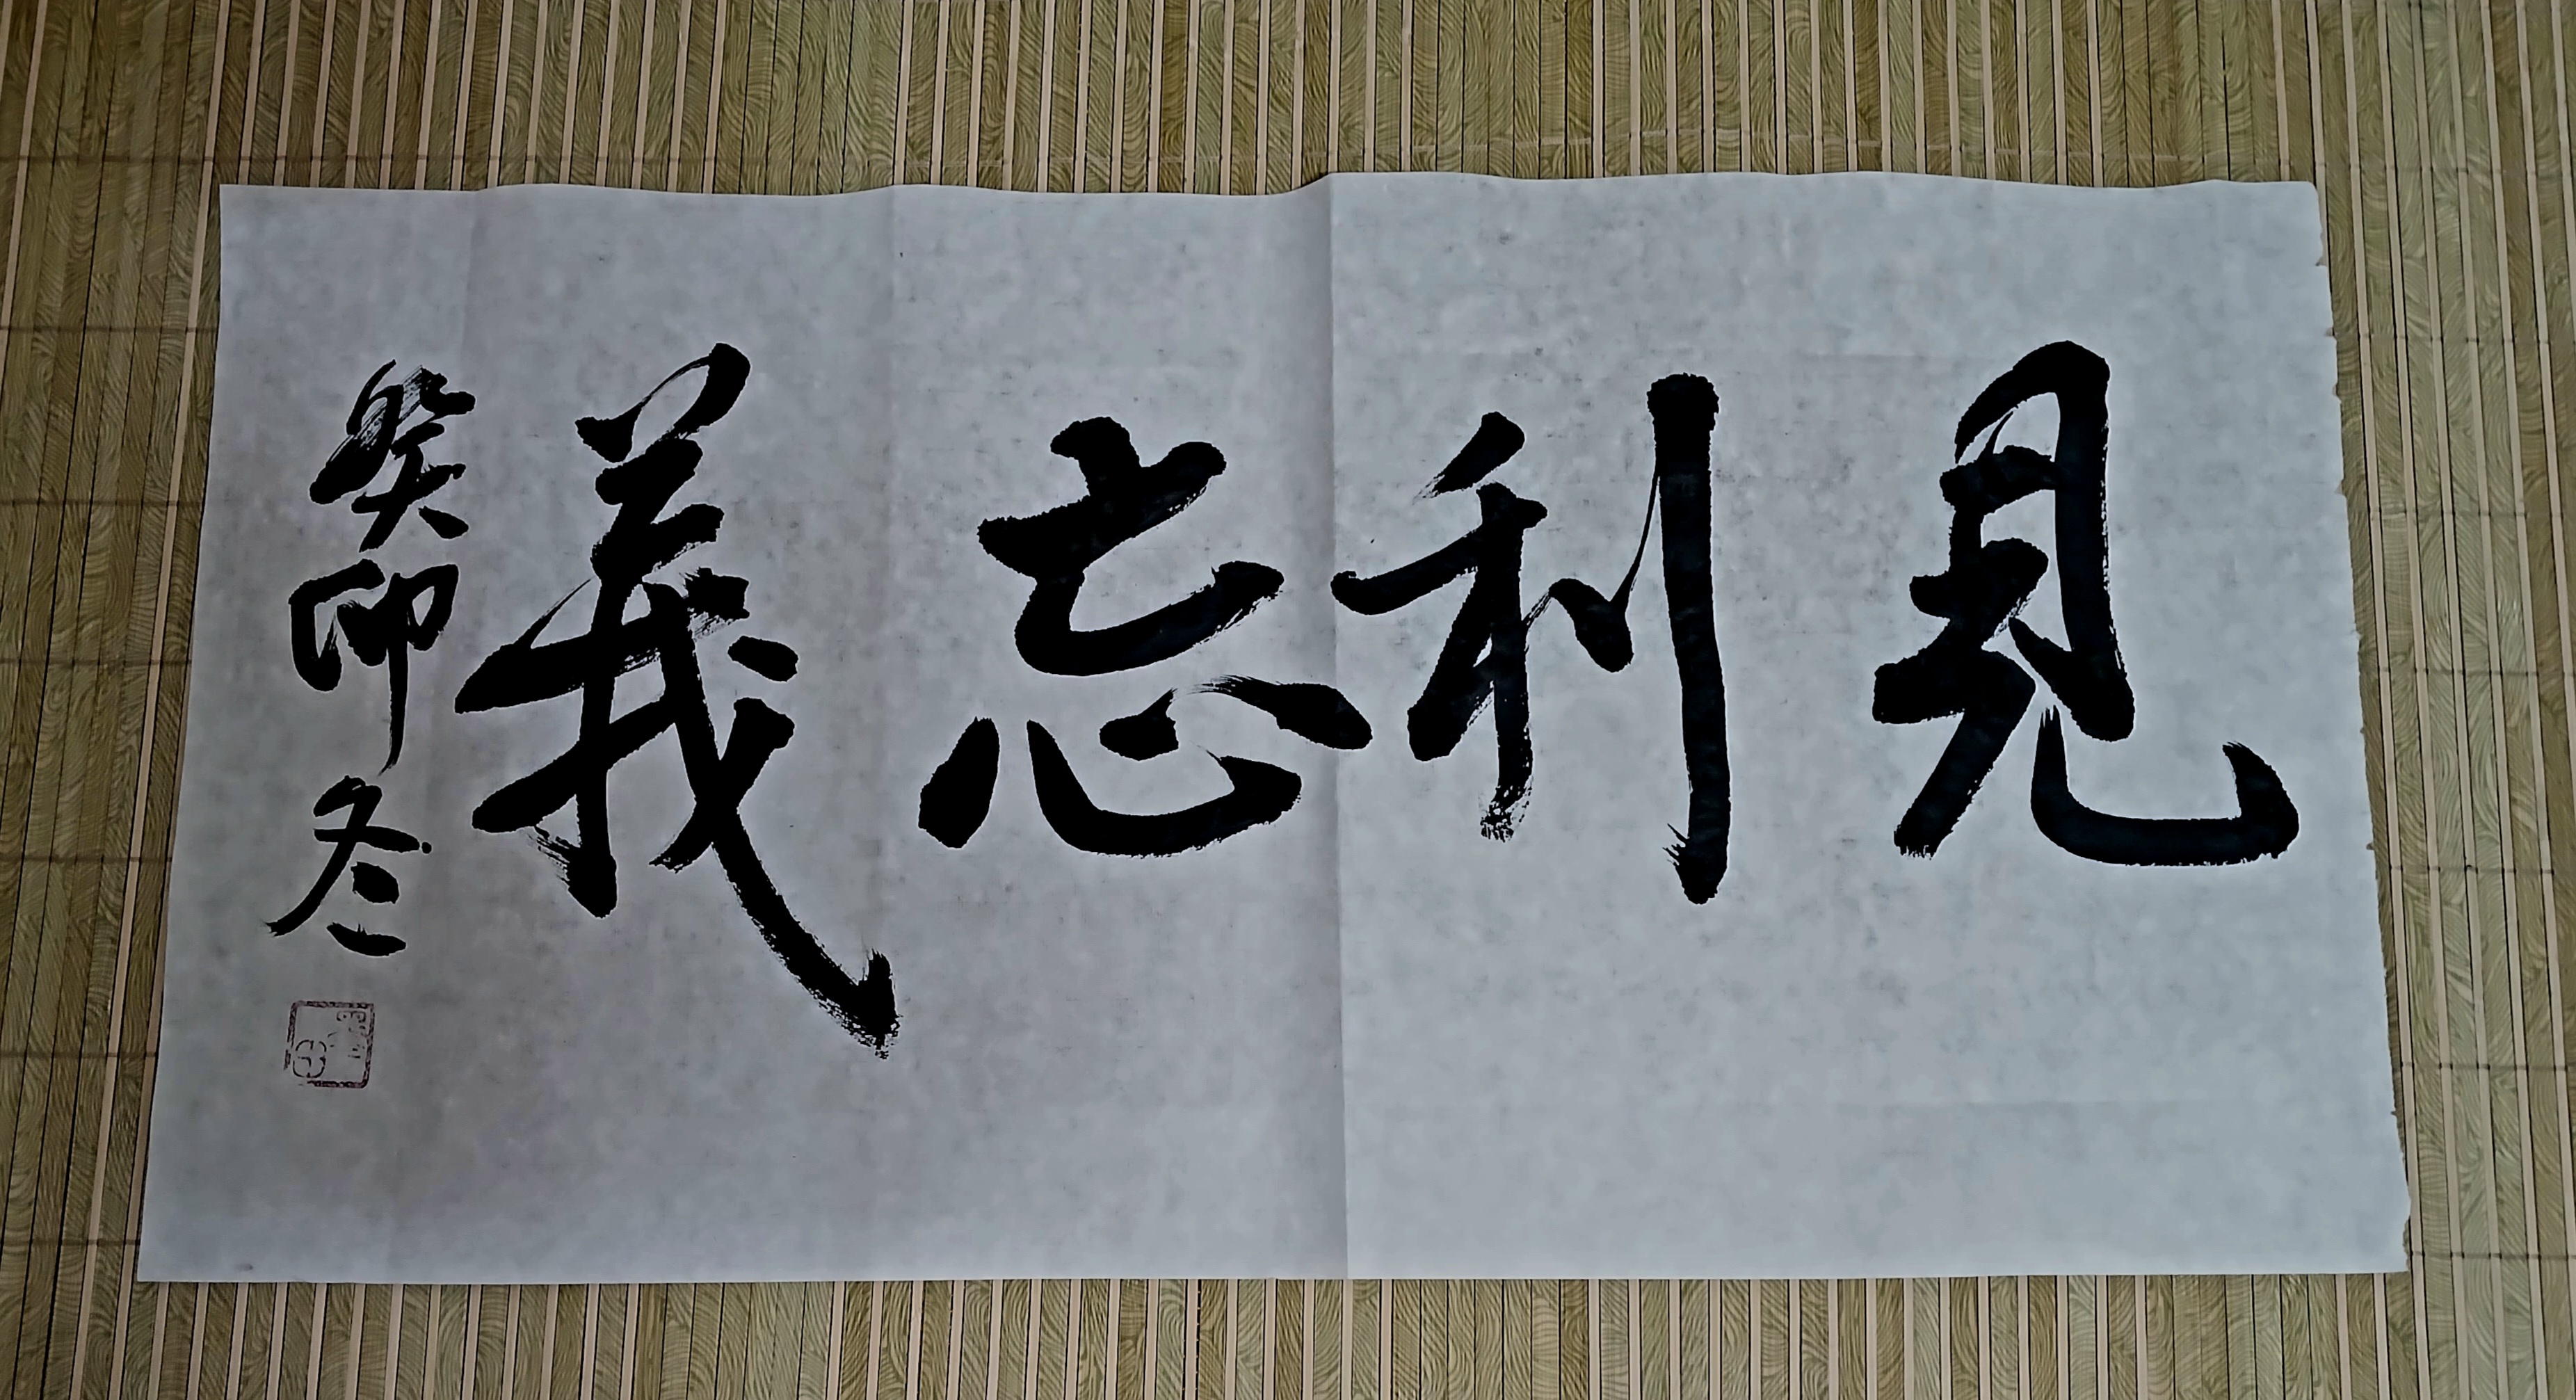 見利忘義
癸卯冬